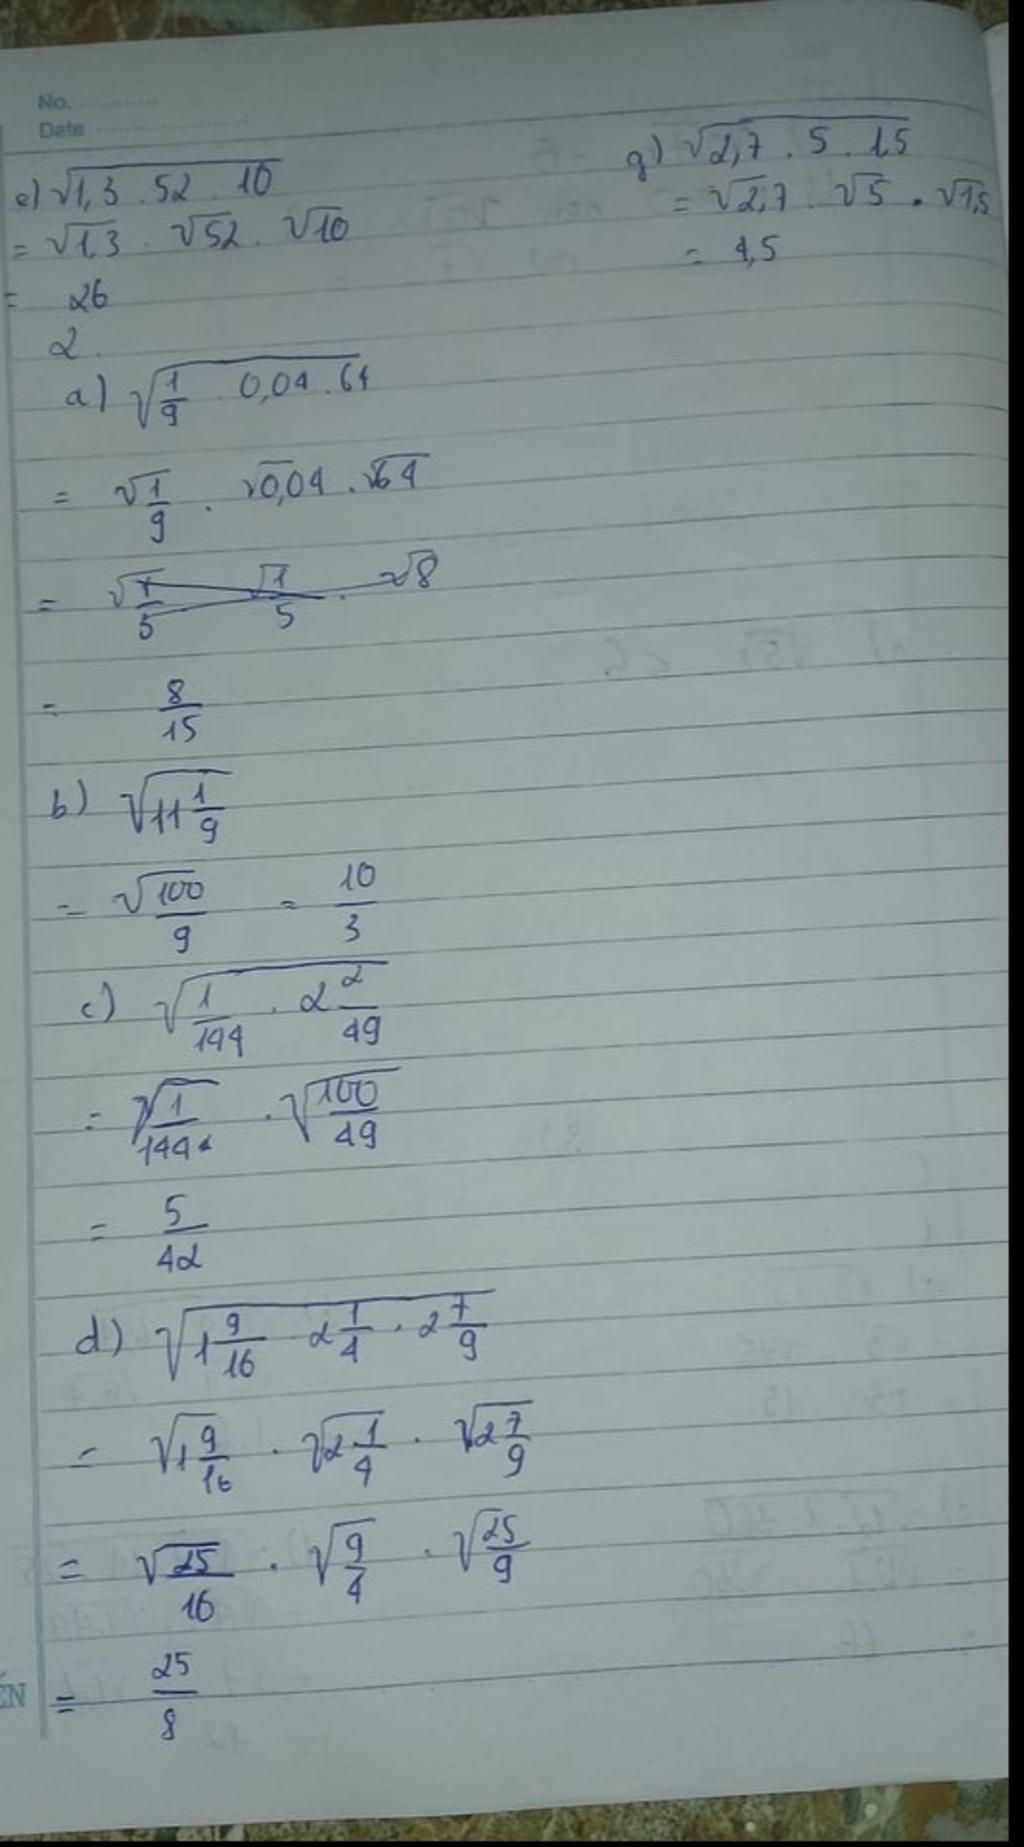 No.
Date
e) √1,3 . 52 . 10
= √1,3 . √52 . √10
= 26
g) √2,7 . 5 . 1,5
= √2,7 . √5 . √1,5
= 4,5
2.
a) √1/9 . 0,04 . 64
= √1/9 . √0,04 . √64
= √1/5 √1/5 . √8
= 8/15
b) √11 1/9
= √100/9 = 10/3
c) √1/144 . 2 2/49
= √1/144 . √100/49
= 5/42
d) √1 9/16 2 1/4 . 2 7/9
= √1 9/16 . √2 1/4 . √2 7/9
= √25/16 . √9/4 . √25/9
= 25/8